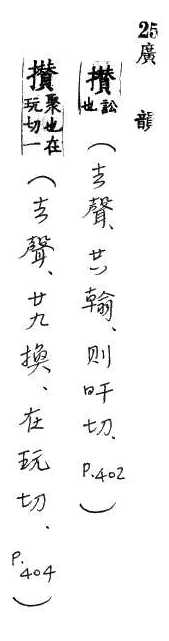 25 廣韻
攢 訟也（去聲、廿八翰、則旰切. P.402）
攢 聚也在玩切一（去聲、廿九換、在玩切. P.404）